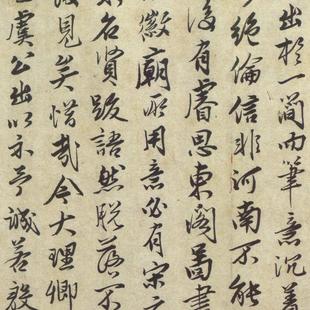 出於一簡而筆意沉着
絶倫信非河南不能
後有睿思東閣圖書
徽廟所用意必有宋元
名賢跋語然脱落不
復見矣惜哉今大理卿
虞公出以示予誠若